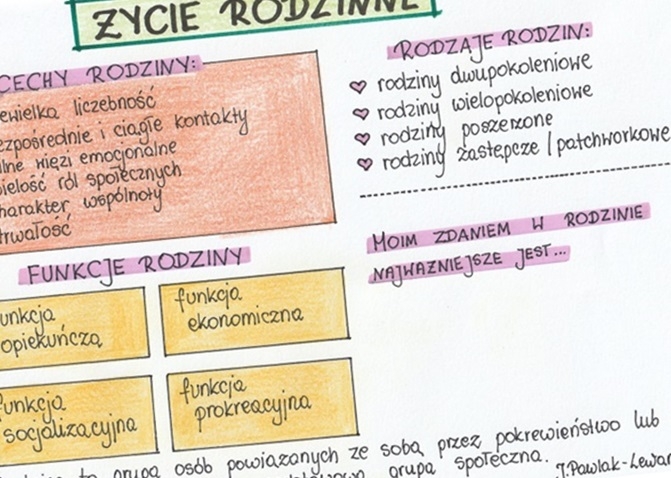 ŻYCIE RODZINNE
CECHY RODZINY:
ewielka liczebność
ezpośrednie i ciągłe kontakty
lne więzi emocjonalne
ielość ról społecznych
harakter wspólnoty
trwałość
RODZAJE RODZIN:
rodziny dwupokoleniowe
rodziny wielopokoleniowe
rodziny poszerzone
rodziny zastępcze / patchworkowe
FUNKCJE RODZINY
unkcja
opiekuńcza
funkcja
ekonomiczna
funkcja
socjalizacyjna
funkcja
prokreacyjna
MOIM ZDANIEM W RODZINIE
NAJWAŻNIEJSZE JEST...
to grupa osób powiązanych ze sobą przez pokrewieństwo lub
grupa społeczna.
J. Pawlak-Lewan